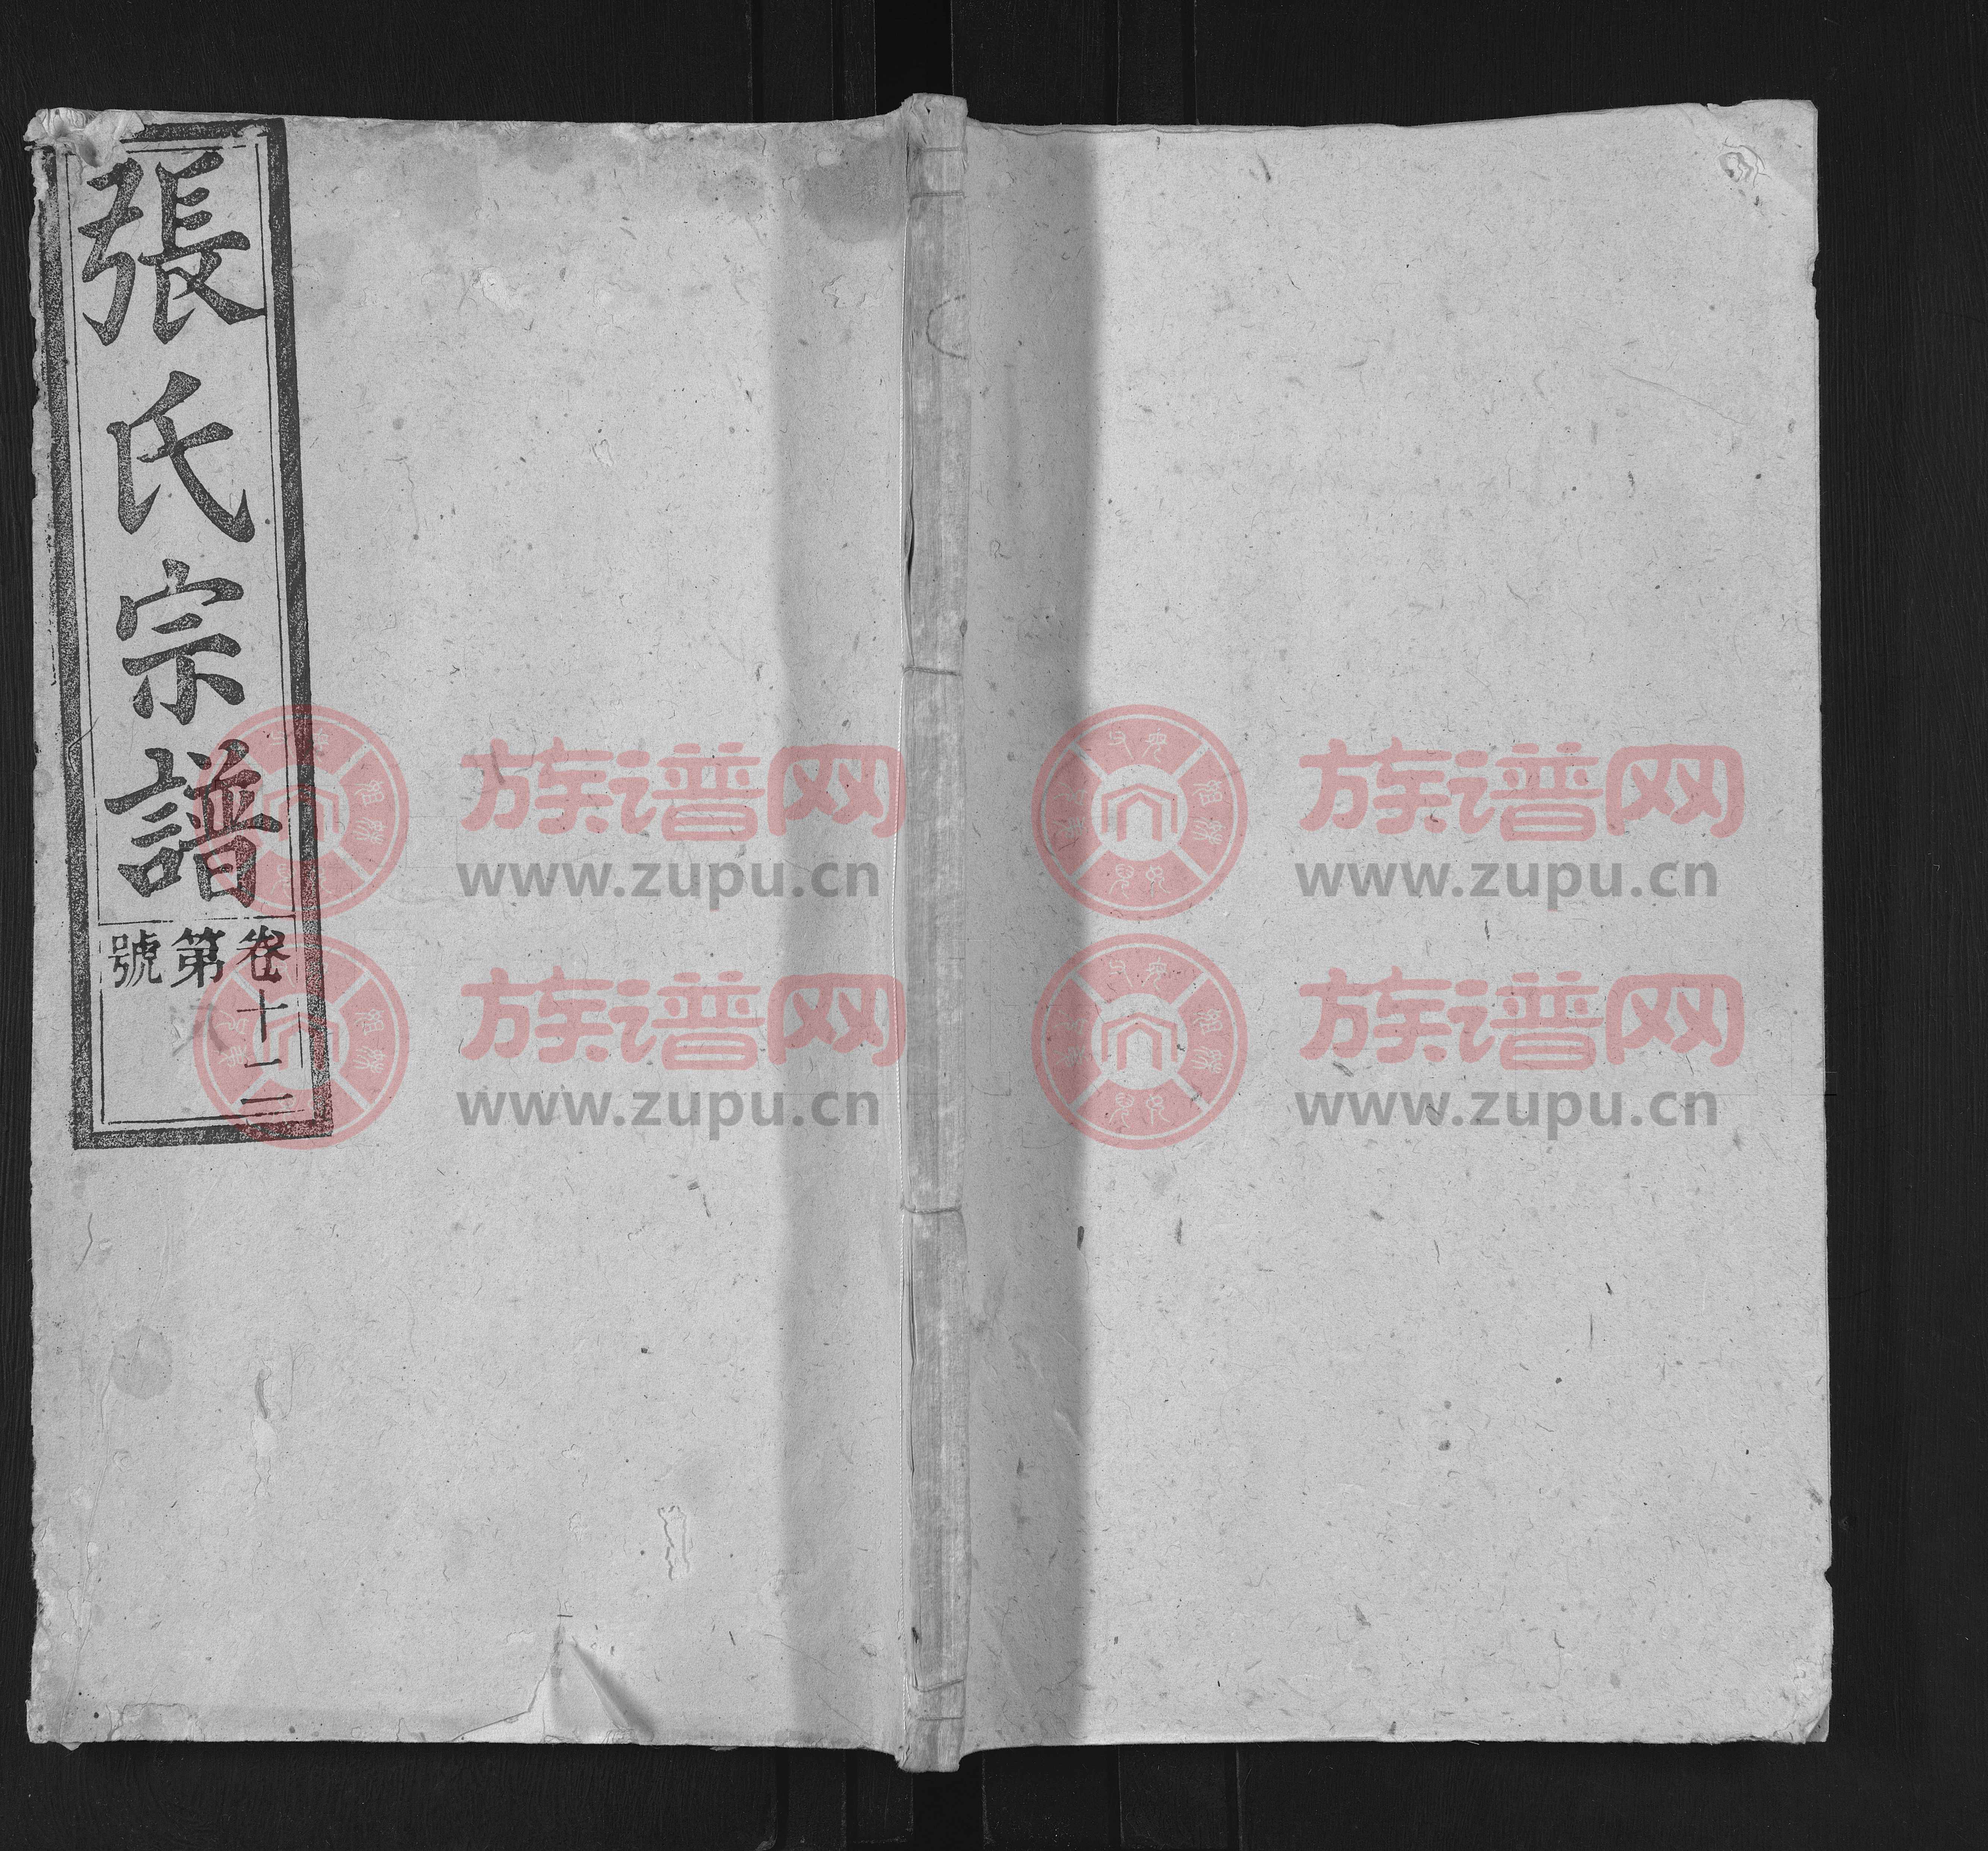 張氏宗譜
卷十二
第
號
族谱网
www.zupu.cn
族谱网
www.zupu.cn
族谱网
www.zupu.cn
族谱网
www.zupu.cn